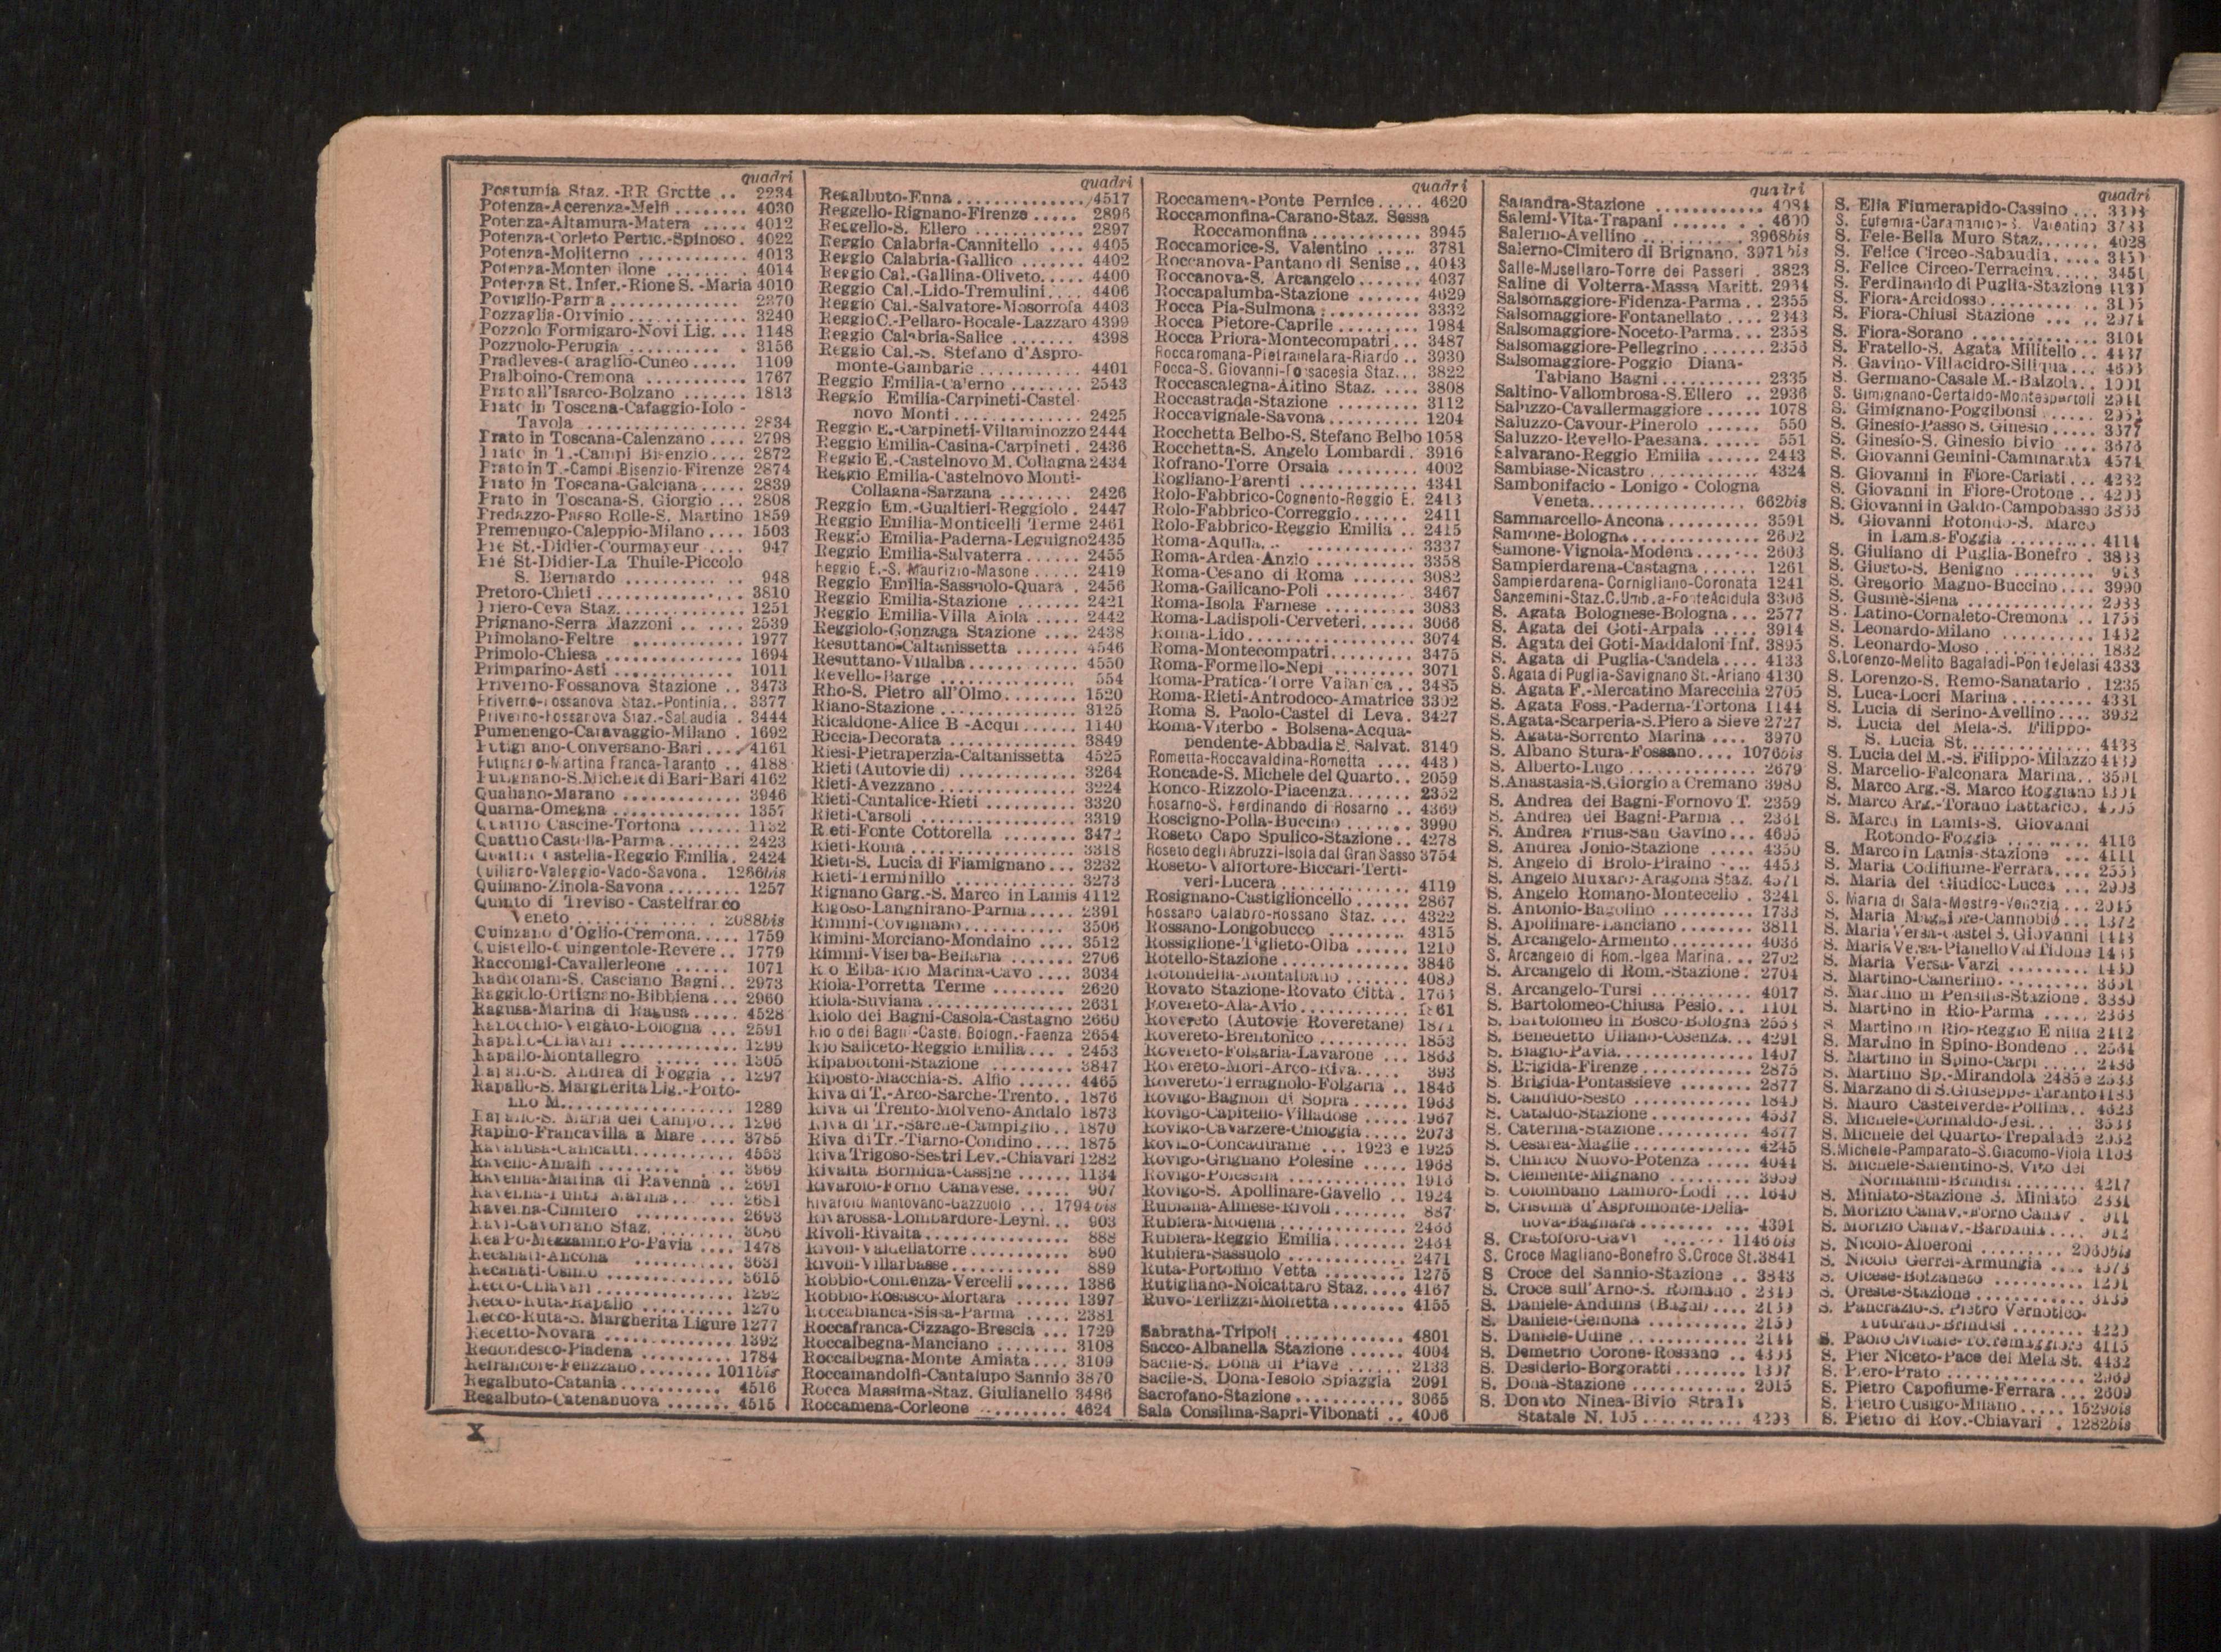 quadri
Postumia Staz.-RR Grotte .. 2234
Potenza-Acerenza-Melfi ........ 4030
Potenza-Altamura-Matera ..... 4012
Potenza-Corleto Pertic.-Spinoso. 4022
Potenza-Moliterno ............ 4013
Potenza-Montemilone ........ 4014
Potenza St. Infer.-Rione S.-Maria 4010
Poviglio-Parma ............... 2370
Pozzaglia-Orvinio ............. 3240
Pozzolo Formigaro-Novi Lig. ... 1148
Pozzuolo-Perugia .......... . 3156
Pradleves-Caraglio-Cuneo ..... 1109
Pralboino-Cremona ........... 1767
Prato all'Isarco-Bolzano ....... 1813
Prato in Toscana-Cafaggio-Iolo -
Tavola .................. 2834
Prato in Toscana-Calenzano .... 2798
Prato in T.-Campi Bisenzio .... 2872
Prato in T.-Campi Bisenzio-Firenze 2874
Prato in Toscana-Galciana ..... 2839
Prato in Toscana-S. Giorgio ... 2808
Predazzo-Passo Rolle-S. Martino 1859
Premenugo-Caleppio-Milano .... 1503
Pré St.-Didier-Courmayeur .... 947
Pré St-Didier-La Thuile-Piccolo
S. Bernardo ............ 948
Pretoro-Chieti ............... 3810
Priero-Ceva Staz. ............ 1251
Prignano-Serra Mazzoni .. .... 2539
Primolano-Feltre ............ 1977
Primolo-Chiesa ............... 1694
Primparino-Asti .............. 1011
Priverno-Fossanova Stazione .. 3473
Priverno-Fossanova Staz.-Pontinia.. 3377
Priverno-Fossanova Staz.-Sabaudia . 3444
Pumenengo-Caravaggio-Milano . 1692
Putignano-Conversano-Bari .... 4161
Putignano-Martina Franca-Taranto .. 4188
Putignano-S.Michele di Bari-Bari 4162
Qualiano-Marano ............ 3946
Quarna-Omegna ............. 1357
Quattro Cascine-Tortona ...... 1132
Quattro Castella-Parma ....... 2423
Quattro Castella-Reggio Emilia. 2424
Quiliano-Valeggio-Vado-Savona. 1266bis
Quiliano-Zinola-Savona ........ 1257
Quinto di Treviso - Castelfranco
Veneto .................. 2088bis
Quinzano d'Oglio-Cremona..... 1759
Quistello-Quingentole-Revere .. 1779
Racconigi-Cavallerleone ...... 1071
Radicofani-S. Casciano Bagni.. 2973
Raggiolo-Ortignano-Bibbiena... 2960
Ragusa-Marina di Ragusa ..... 4528
Ranocchio-Vergato-Bologna ... 2591
Rapallo-Chiavari ............. 1299
Rapallo-Montallegro ..... .... 1305
Rapallo-S. Andrea di Foggia .. 1297
Rapallo-S. Margherita Lig.-Porto-
fino M. .................. 1289
Rapallo-S. Maria del Campo ... 1296
Rapino-Francavilla a Mare .... 3785
Ravanusa-Canicattì ............ 4553
Ravello-Amalfi ............ 3969
Ravenna-Marina di Ravenna .. 2691
Ravenna-Punta Marina .. ... 2681
Ravenna-Cimitero ........... 2693
Ravi-Gavorrano Staz. ......... 3086
Rea Po-Mezzanino Po-Pavia .... 1478
Recanati-Ancona ........... 3631
Recanati-Osimo ............. 3615
Recco-Chiavari .............. 1292
Recco-Ruta-Rapallo .......... 1276
Recco-Ruta-S. Margherita Ligure 1277
Recetto-Novara ............... 1392
Redondesco-Piadena .......... 1784
Refrancore-Felizzano ........ 1011bis
Regalbuto-Catania ........... 4516
Regalbuto-Catenanuova ....... 4515
X
quadri
Regalbuto-Enna .............. 4517
Reggello-Rignano-Firenze ..... 2896
Reggello-S. Ellero ............ 2897
Reggio Calabria-Cannitello .... 4405
Reggio Calabria-Gallico ....... 4402
Reggio Cal.-Gallina-Oliveto.... 4400
Reggio Cal.-Lido-Tremulini.... 4406
Reggio Cal.-Salvatore-Mosorrofa 4403
Reggio C.-Pellaro-Bocale-Lazzaro 4399
Reggio Calabria-Salice ....... 4398
Reggio Cal.-S. Stefano d'Aspro-
monte-Gambarie ........... 4401
Reggio Emilia-Calerno ........ 2543
Reggio Emilia-Carpineti-Castel-
novo Monti .............. 2425
Reggio E.-Carpineti-Villaminozzo 2444
Reggio Emilia-Casina-Carpineti . 2436
Reggio E.-Castelnovo M. Collagna 2434
Reggio Emilia-Castelnovo Monti-
Collagna-Sarzana ........ 2426
Reggio Em.-Gualtieri-Reggiolo . 2447
Reggio Emilia-Monticelli Terme 2461
Reggio Emilia-Paderna-Leguigno 2435
Reggio Emilia-Salvaterra ...... 2455
Reggio E.-S. Maurizio-Masone ..... 2419
Reggio Emilia-Sassuolo-Quara . 2456
Reggio Emilia-Stazione ....... 2421
Reggio Emilia-Villa Aiola ..... 2442
Reggiolo-Gonzaga Stazione .... 2438
Resuttano-Caltanissetta ....... 4546
Resuttano-Villalba ........... 4550
Revello-Barge ............... 554
Rho-S. Pietro all'Olmo ........ 1520
Riano-Stazione .............. 3125
Ricaldone-Alice B -Acqui ...... 1140
Riccia-Decorata ............. 3849
Riesi-Pietraperzia-Caltanissetta 4525
Rieti (Autovie di) ............ 3264
Rieti-Avezzano .............. 3224
Rieti-Cantalice-Rieti .......... 3320
Rieti-Carsoli ................ 3319
Rieti-Fonte Cottorella ........ 3472
Rieti-Roma ................. 3318
Rieti-S. Lucia di Fiamignano ... 3232
Rieti-Terminillo ............ 3273
Rignano Garg.-S. Marco in Lamis 4112
Rigoso-Langhirano-Parma ..... 2391
Rimini-Covignano ............ 3506
Rimini-Morciano-Mondaino .... 3512
Rimini-Viserba-Bellaria ....... 2706
Rio Elba-Rio Marina-Cavo .... 3034
Riola-Porretta Terme ......... 2620
Riola-Suviana ............... 2631
Riolo dei Bagni-Casola-Castagno 2660
Riolo dei Bagni-Castel Bologn.-Faenza 2654
Rio Saliceto-Reggio Emilia .... 2453
Ripabottoni-Stazione ......... 3847
Riposto-Macchia-S. Alfio ...... 4465
Riva di T.-Arco-Sarche-Trento.. 1876
Riva di Trento-Molveno-Andalo 1873
Riva di Tr.-Sarche-Campiglio .. 1870
Riva di Tr.-Tiarno-Condino .... 1875
Riva Trigoso-Sestri Lev.-Chiavari 1282
Rivalta Bormida-Cassine ...... 1134
Rivarolo-Forno Canavese. ..... 907
Rivarolo Mantovano-Gazzuolo ... 1794bis
Rivarossa-Lombardore-Leyni... 903
Rivoli-Rivalta ............... 888
Rivoli-Valdellatorre ........... 890
Rivoli-Villarbasse ............ 889
Robbio-Confienza-Vercelli ...... 1386
Robbio-Rosasco-Mortara ...... 1397
Roccabianca-Sissa-Parma ..... 2381
Roccafranca-Cizzago-Brescia ... 1729
Roccalbegna-Manciano ........ 3108
Roccalbegna-Monte Amiata .... 3109
Roccamandolfi-Cantalupo Sannio 3870
Rocca Massima-Staz. Giulianello 3486
Roccamena-Corleone ......... 4624
quadri
Roccamena-Ponte Pernice ..... 4620
Roccamonfina-Carano-Staz. Sessa
Roccamonfina ............ 3945
Roccamorice-S. Valentino ..... 3781
Roccanova-Pantano di Senise .. 4043
Roccanova-S. Arcangelo ....... 4037
Roccapalumba-Stazione ....... 4629
Rocca Pia-Sulmona ........... 3332
Rocca Pietore-Caprile ......... 1984
Rocca Priora-Montecompatri ... 3487
Roccaromana-Pietramelara-Riardo .. 3930
Rocca-S. Giovanni-Fossacesia Staz... 3822
Roccascalegna-Altino Staz. .... 3808
Roccastrada-Stazione ......... 3112
Roccavignale-Savona .......... 1204
Rocchetta Belbo-S. Stefano Belbo 1058
Rocchetta-S. Angelo Lombardi . 3916
Rofrano-Torre Orsaia ......... 4002
Rogliano-Parenti ............ 4341
Rolo-Fabbrico-Cognento-Reggio E. 2413
Rolo-Fabbrico-Correggio ...... 2411
Rolo-Fabbrico-Reggio Emilia .. 2415
Roma-Aquila. .. ............ 3337
Roma-Ardea-Anzio ........... 3358
Roma-Cesano di Roma ....... 3082
Roma-Gallicano-Poli ......... 3467
Roma-Isola Farnese .......... 3083
Roma-Ladispoli-Cerveteri ...... 3066
Roma-Lido .................. 3074
Roma-Montecompatri ......... 3475
Roma-Formello-Nepi ......... 3071
Roma-Pratica-Torre Vaianica .. 3485
Roma-Rieti-Antrodoco-Amatrice 3302
Roma S. Paolo-Castel di Leva . 3427
Roma-Viterbo - Bolsena-Acqua-
pendente-Abbadia S. Salvat. 3140
Rometta-Roccavaldina-Rometta .... 4430
Roncade-S. Michele del Quarto .. 2059
Ronco-Rizzolo-Piacenza ....... 2352
Rosarno-S. Ferdinando di Rosarno .. 4369
Roscigno-Polla-Buccino ....... 3990
Roseto Capo Spulico-Stazione .. 4278
Roseto degli Abruzzi-Isola dal Gran Sasso 3754
Roseto-Valfortore-Biccari-Terti-
veri-Lucera .............. 4119
Rosignano-Castiglioncello ...... 2867
Rossano Calabro-Rossano Staz. ... 4322
Rossano-Longobucco ......... 4315
Rossiglione-Tiglieto-Olba ...... 1210
Rotello-Stazione ............. 3846
Rotondella-Montalbano ....... 4089
Rovato Stazione-Rovato Città . 1763
Rovereto-Ala-Avio ............ 1861
Rovereto (Autovie Roveretane) 1871
Rovereto-Brentonico ......... 1853
Rovereto-Folgaria-Lavarone ... 1863
Rovereto-Mori-Arco-Riva ..... 393
Rovereto-Terragnolo-Folgaria .. 1846
Rovigo-Bagnoli di Sopra ...... 1963
Rovigo-Capitello-Villadose .... 1967
Rovigo-Cavarzere-Chioggia ..... 2073
Rovigo-Concadirame ... 1923 e 1925
Rovigo-Grignano Polesine ..... 1968
Rovigo-Polesella ............ 1916
Rovigo-S. Apollinare-Gavello .. 1924
Rubiana-Almese-Rivoli ........ 887
Rubiera-Modena ............. 2466
Rubiera-Reggio Emilia ........ 2464
Rubiera-Sassuolo ............ 2471
Ruta-Portofino Vetta ......... 1275
Rutigliano-Noicattaro Staz. .... 4167
Ruvo-Terlizzi-Molfetta ........ 4155
Sabratha-Tripoli ............. 4801
Sacco-Albanella Stazione ...... 4004
Sacile-S. Donà di Piave ...... 2133
Sacile-S. Donà-Iesolo Spiaggia 2091
Sacrofano-Stazione ........... 3065
Sala Consilina-Sapri-Vibonati .. 4006
quadri
Salandra-Stazione ........... 4084
Salemi-Vita-Trapani ...... . . 4600
Salerno-Avellino .......... 3968bis
Salerno-Cimitero di Brignano. 3971bis
Salle-Musellaro-Torre dei Passeri . 3823
Saline di Volterra-Massa Maritt. 2934
Salsomaggiore-Fidenza-Parma .. 2355
Salsomaggiore-Fontanellato .... 2343
Salsomaggiore-Noceto-Parma ... 2358
Salsomaggiore-Pellegrino ....... 2356
Salsomaggiore-Poggio Diana-
Tabiano Bagni ........... 2335
Saltino-Vallombrosa-S.Ellero .. 2936
Saluzzo-Cavallermaggiore ...... 1078
Saluzzo-Cavour-Pinerolo ...... 550
Saluzzo-Revello-Paesana ...... 551
Salvarano-Reggio Emilia ...... 2443
Sambiase-Nicastro ............ 4324
Sambonifacio - Lonigo - Cologna
Veneta ................. 662bis
Sammarcello-Ancona .......... 3591
Samone-Bologna .............. 2602
Samone-Vignola-Modena ....... 2603
Sampierdarena-Castagna ...... 1261
Sampierdarena-Cornigliano-Coronata 1241
Sangemini-Staz.C.Umb.a-FonteAcidula 3306
S. Agata Bolognese-Bologna ... 2577
S. Agata dei Goti-Arpaia ..... 3914
S. Agata dei Goti-Maddaloni Inf. 3895
S. Agata di Puglia-Candela .... 4133
S. Agata di Puglia-Savignano St.-Ariano 4130
S. Agata F.-Mercatino Marecchia 2705
S. Agata Foss.-Paderna-Tortona 1144
S.Agata-Scarperia-S.Piero a Sieve 2727
S. Agata-Sorrento Marina .... 3970
S. Albano Stura-Fossano .... 1076bis
S. Alberto-Lugo ............. 2679
S.Anastasia-S.Giorgio a Cremano 3980
S. Andrea dei Bagni-Fornovo T. 2359
S. Andrea dei Bagni-Parma .. 2361
S. Andrea Frius-San Gavino ... 4695
S. Andrea Jonio-Stazione ..... 4350
S. Angelo di Brolo-Piraino .... 4453
S. Angelo Muxaro-Aragona Staz. 4571
S. Angelo Romano-Montecelio . 3241
S. Antonio-Bagolino .......... 1733
S. Apollinare-Lanciano ........ 3811
S. Arcangelo-Armento ......... 4036
S. Arcangelo di Rom.-Igea Marina ... 2702
S. Arcangelo di Rom.-Stazione . 2704
S. Arcangelo-Tursi .......... 4017
S. Bartolomeo-Chiusa Pesio ... 1101
S. Bartolomeo in Bosco-Bologna 2553
S. Benedetto Ullano-Cosenza ... 4291
S. Biagio-Pavia .............. 1407
S. Brigida-Firenze ........... 2875
S. Brigida-Pontassieve ........ 2877
S. Candido-Sesto ............ 1840
S. Cataldo-Stazione ........... 4537
S. Caterina-Stazione .......... 4377
S. Cesarea-Maglie ............ 4245
S. Chirico Nuovo-Potenza ..... 4044
S. Clemente-Mignano ......... 3959
S. Colombano Lambro-Lodi ... 1640
S. Cristina d'Aspromonte-Delia-
nova-Bagnara ............ 4391
S. Cristoforo-Gavi ....... 1146bis
S. Croce Magliano-Bonefro S.Croce St. 3841
S. Croce del Sannio-Stazione .. 3843
S. Croce sull'Arno-S. Romano .
S. Daniele-Anduins (Bagni) ....
S. Daniele-Gemona ..........
S. Daniele-Udine ............
S. Demetrio Corone-Rossano ..
S. Desiderio-Borgoratti ........
S. Donà-Stazione ............ 2015
S. Donato Ninea-Bivio Strada
Statale N. 105 ...........
quadri
S. Elia Fiumerapido-Cassino ...
S. Eufemia-Caramanico-S. Valentino 3783
S. Fele-Bella Muro Staz. ...... 4028
S. Felice Circeo-Sabaudia .... 3450
S. Felice Circeo-Terracina ..... 3451
S. Ferdinando di Puglia-Stazione
S. Fiora-Arcidosso ...........
S. Fiora-Chiusi Stazione ... ..
S. Fiora-Sorano ............. 3104
S. Fratello-S. Agata Militello .. 4437
S. Gavino-Villacidro-Siliqua ...
S. Germano-Casale M.-Balzola..
S. Gimignano-Certaldo-Montespertoli 2941
S. Gimignano-Poggibonsi ......
S. Ginesio-Passo S. Ginesio ..... 3677
S. Ginesio-S. Ginesio bivio .... 3676
S. Giovanni Gemini-Cammarata 4574
S. Giovanni in Fiore-Cariati ... 4232
S. Giovanni in Fiore-Crotone .. 4293
S. Giovanni in Galdo-Campobasso
S. Giovanni Rotondo-S. Marco
in Lamis-Foggia .......... 4114
S. Giuliano di Puglia-Bonefro . 3833
S. Giusto-S. Benigno ......... 913
S. Gregorio Magno-Buccino .... 3990
S. Gusmè-Siena .............
S. Latino-Cornaleto-Cremona .. 1756
S. Leonardo-Milano .......... 1432
S. Leonardo-Moso ............ 1832
S.Lorenzo-Melito Bagaladi-Pon teJelasi 4383
S. Lorenzo-S. Remo-Sanatario . 1235
S. Luca-Locri Marina ......... 4381
S. Lucia di Serino-Avellino .... 3932
S. Lucia del Mela-S. Filippo-
S. Lucia St. ............. 4438
S. Lucia del M.-S. Filippo-Milazzo 4439
S. Marcello-Falconara Marina .. 3591
S. Marco Arg.-S. Marco Roggiano
S. Marco Arg.-Torano Lattarico.
S. Marco in Lamis-S. Giovanni
Rotondo-Foggia .......... 4116
S. Marco in Lamis-Stazione ... 4111
S. Maria Codifiume-Ferrara .... 2553
S. Maria del Giudice-Lucca ...
S. Maria di Sala-Mestre-Venezia ... 2045
S. Maria Maggiore-Cannobio ... 1372
S. Maria Versa-Castel S. Giovanni
S. Maria Versa-Pianello Val Tidone
S. Maria Versa-Varzi ......... 1430
S. Martino-Camerino ..........
S. Martino in Pensilis-Stazione . 3830
S. Martino in Rio-Parma ..... 2363
S. Martino in Rio-Reggio Emilia 2412
S. Martino in Spino-Bondeno .. 2534
S. Martino in Spino-Carpi .... 2436
S. Martino Sp.-Mirandola 2485 e 2533
S. Marzano di S.Giuseppe-Taranto
S. Mauro Castelverde-Pollina .. 4623
S. Michele-Corinaldo-Jesi ..... 3533
S. Michele del Quarto-Trepalade
S.Michele-Pamparato-S.Giacomo-Viola 1103
S. Michele-Salentino-S. Vito dei
Normanni-Brindisi ........ 4217
S. Miniato-Stazione S. Miniato 2331
S. Morizio Canav.-Forno Canav . 911
S. Morizio Canav.-Barbania .... 912
S. Nicolò-Alberoni ......... 2060bis
S. Nicolò Gerrei-Armungia .... 4573
S. Olcese-Bolzaneto ..........
S. Oreste-Stazione ........... 3135
S. Pancrazio-S. Pietro Vernotico-
Tuturano-Brindisi ........ 4220
S. Paolo Civitate-Torremaggiore 4115
S. Pier Niceto-Pace del Mela St. 4432
S. Piero-Prato ...............
S. Pietro Capofiume-Ferrara ... 2609
S. Pietro Cusigo-Milano ..... 1529bis
S. Pietro di Rov.-Chiavari . 1282bis